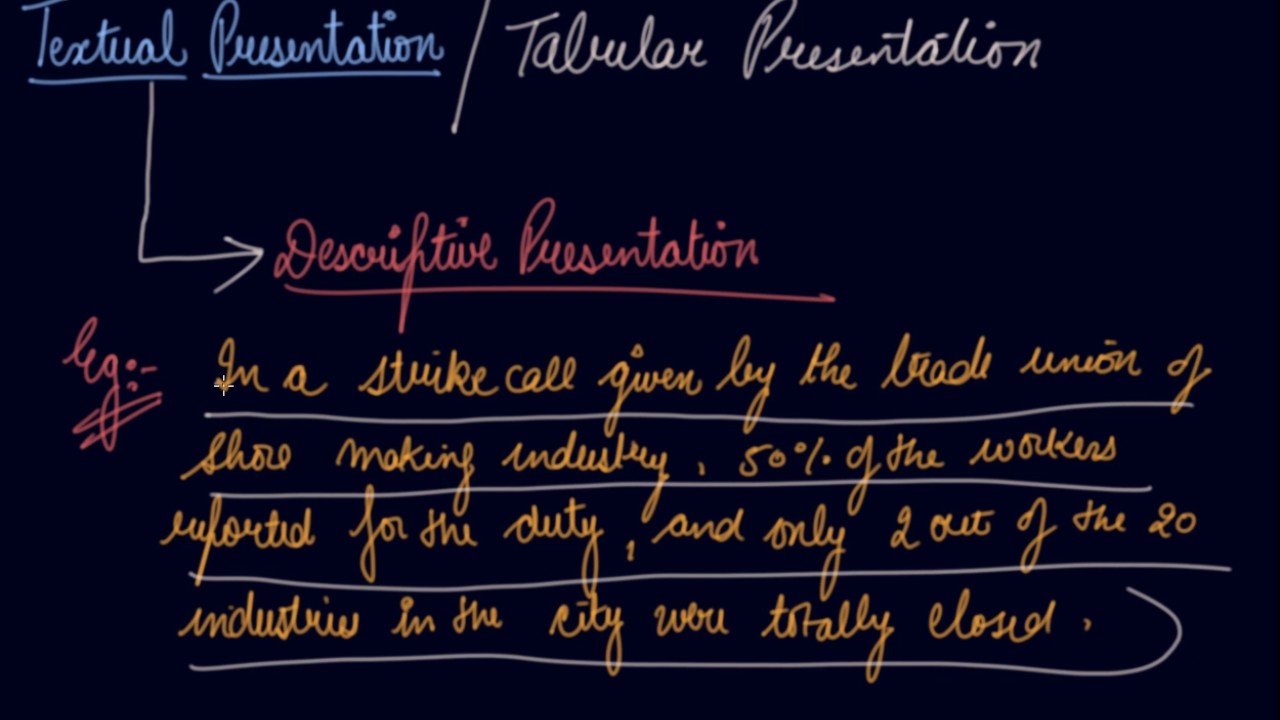 Textual Presentation / Tabular Presentation
Descriptive Presentation
Eg:-
In a strike call given by the trade union of
shoe making industry, 50% of the workers
reported for the duty, and only 2 out of the 20
industries in the city were totally closed.